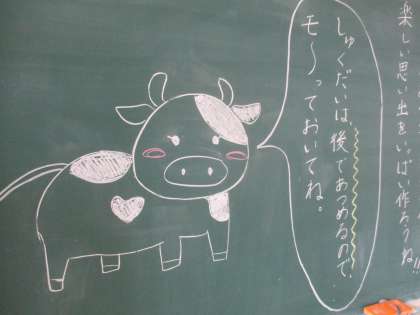 楽しい思い出をいっぱい作ろうね!!
しゅくだいは、後であつめるので、
モ〜っておいてね。